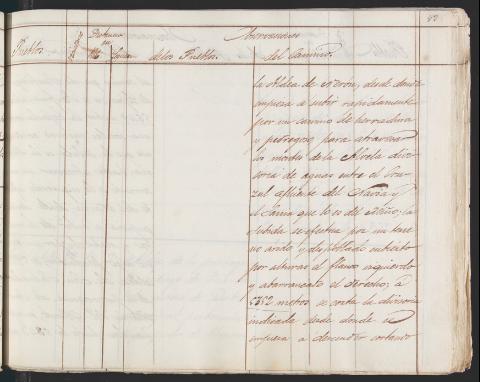 83
Observaciones
Distancia
en
Pueblos. Leguas de los Pueblos. del Camino.
la Aldea de Neron, desde donde
empieza a subir rapidamente
por un camino de herradura
y pedregoso para atravesar
los montes de la Albela divi-
soria de aguas entre el Cru-
zul afluente del Navia y
el Sarria que lo es del Miño; la
subida se efectua por un terre-
no arido y despoblado cubierto
por alturas el flanco izquierdo
y abarrancado el derecho; a
5392 metros se corta la divisoria
indicada desde donde se
empieza a descender cortando